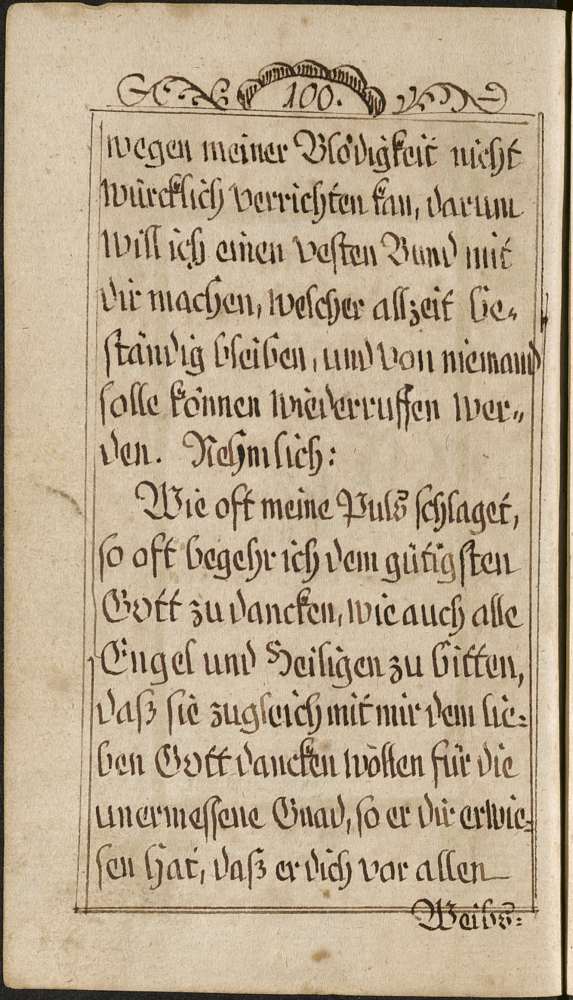 100.
wegen meiner Blödigkeit nicht
würcklich verrichten kan, darum
will ich einen vesten Bund mit
dir machen, welcher allzeit be=
ständig bleiben, und von niemand
solle können wiederruffen wer=
den. Nehmlich:
Wie oft meine Puls schlaget,
so oft begehr ich dem gütigsten
Gott zu dancken, wie auch alle
Engel und Heiligen zu bitten,
daß sie zugleich mit mir dem lie=
ben Gott dancken wöllen für die
unermessene Gnad, so er dir erwie=
sen hat, daß er dich vor allen
Weibs=